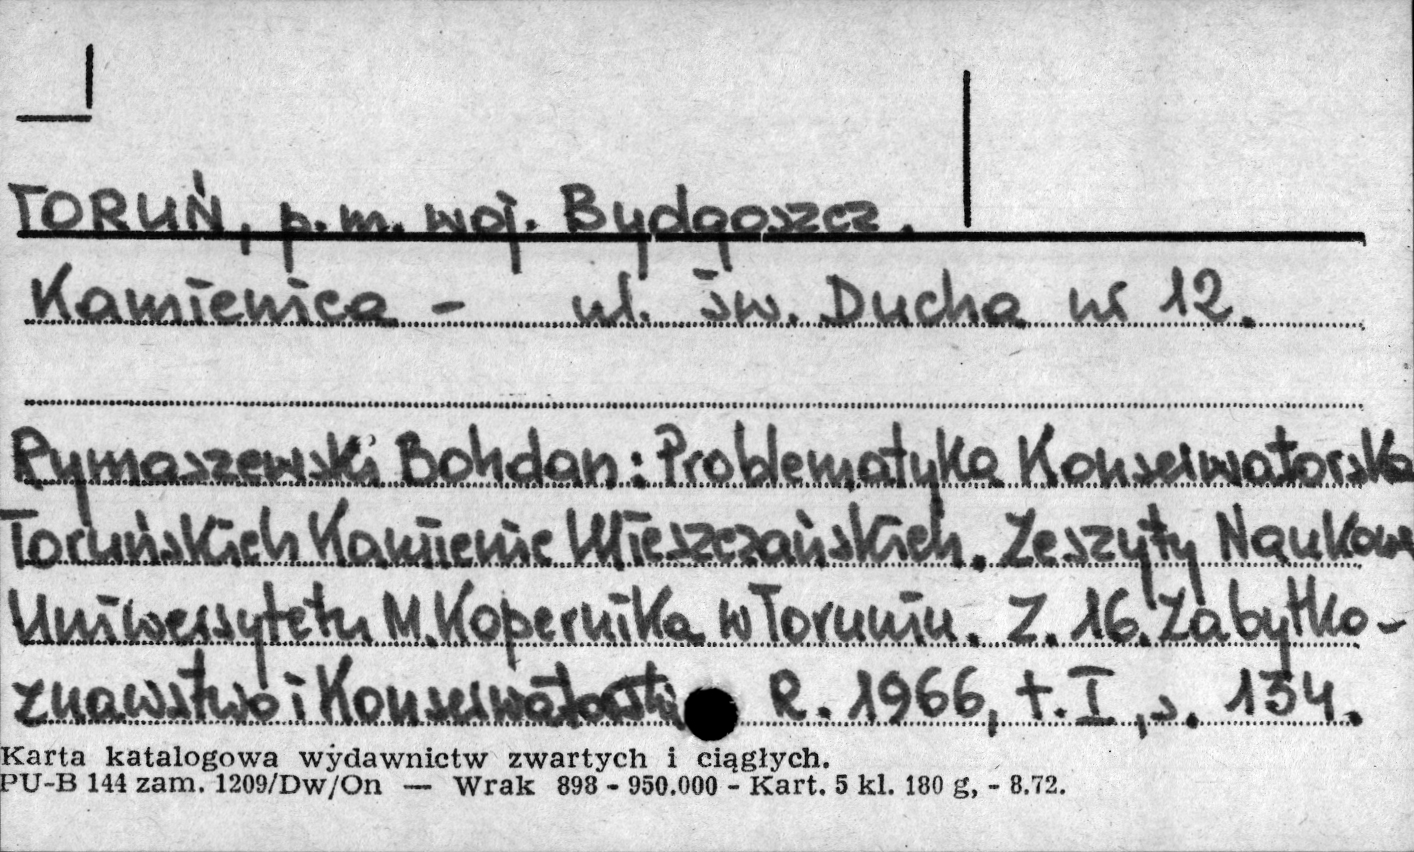 TORUŃ, p.m. woj. Bydgoszcz.
Kamienica - ul. św. Ducha nr 12.
Rymaszewski Bohdan: Problematyka Konserwatorska
Toruńskich Kamienic Mieszczańskich. Zeszyty Naukowe
Uniwersytetu M. Kopernika w Toruniu. Z. 16. Zabytko-
znawstwo i Konserwatorstwo R. 1966, t. I, s. 134.
Karta katalogowa wydawnictw zwartych i ciągłych.
PU-B 144 zam. 1209/Dw/On — Wrak 898 - 950.000 - Kart. 5 kl. 180 g, - 8.72.